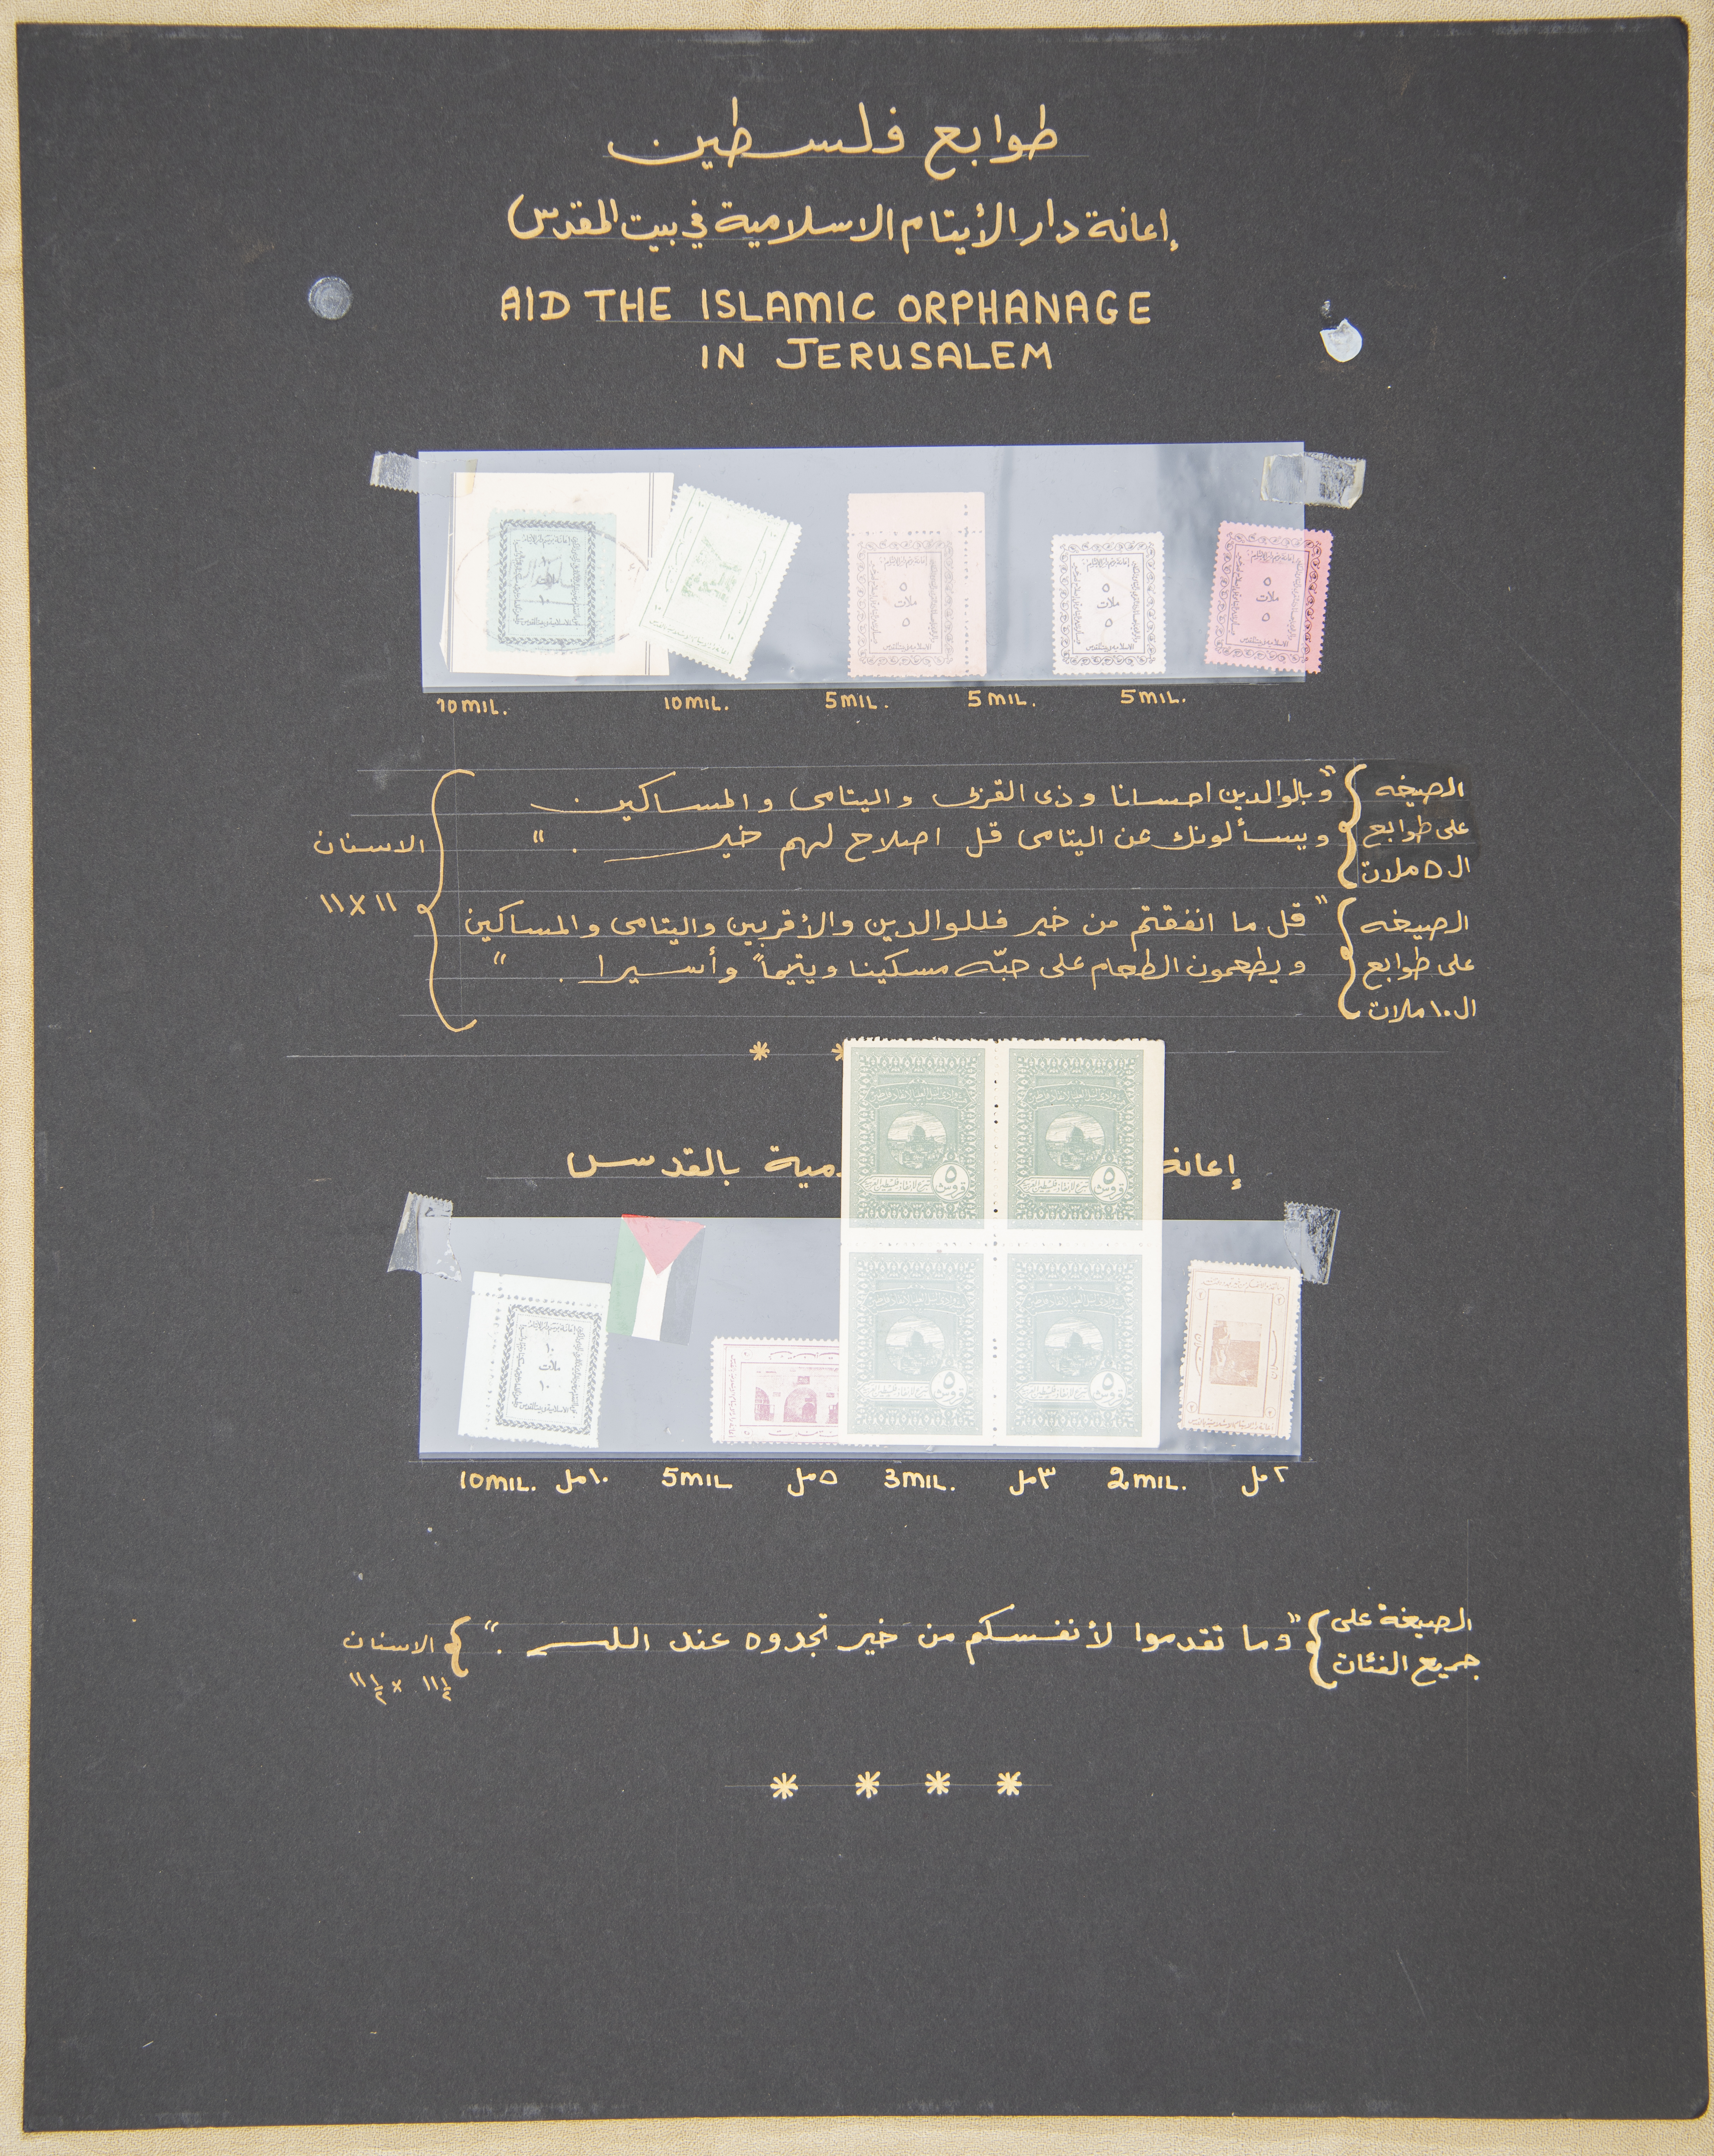 طوابع فلسطين
إعانة دار الأيتام الاسلامية في بيت المقدس
AID THE ISLAMIC ORPHANAGE
IN JERUSALEM
١٠
ملات
١٠
٥
ملات
٥
٥
ملات
٥
٥
ملات
٥
10 MIL. 10 MIL. 5 MIL. 5 MIL. 5 MIL.
الصيغه
على طوابع
ال ٥ ملات
"وبالوالدين احسانا وذى القربى واليتامى والمساكين
ويسألونك عن اليتامى قل اصلاح لهم خير . "
الصيغه
على طوابع
ال ١٠ ملات
"قل ما انفقتم من خير فللوالدين والأقربين واليتامى والمساكين
ويطعمون الطعام على حبّه مسكينا ويتيماً وأسيرا . "
الاسنان
١١ X ١١
* *
إعانة مية بالقدس
٥
قروش
٥
قروش
٥
قروش
٥
قروش
١٠
ملات
١٠
10 MIL. ١٠مل 5 MIL ٥مل 3 MIL. ٣مل 2 MIL. ٢مل
الصيغة على
جميع الفئات
"وما تقدموا لأنفسكم من خير تجدوه عند الله ."
الاسنان
١١ ١/٢ x ١١ ١/٢
* * * *